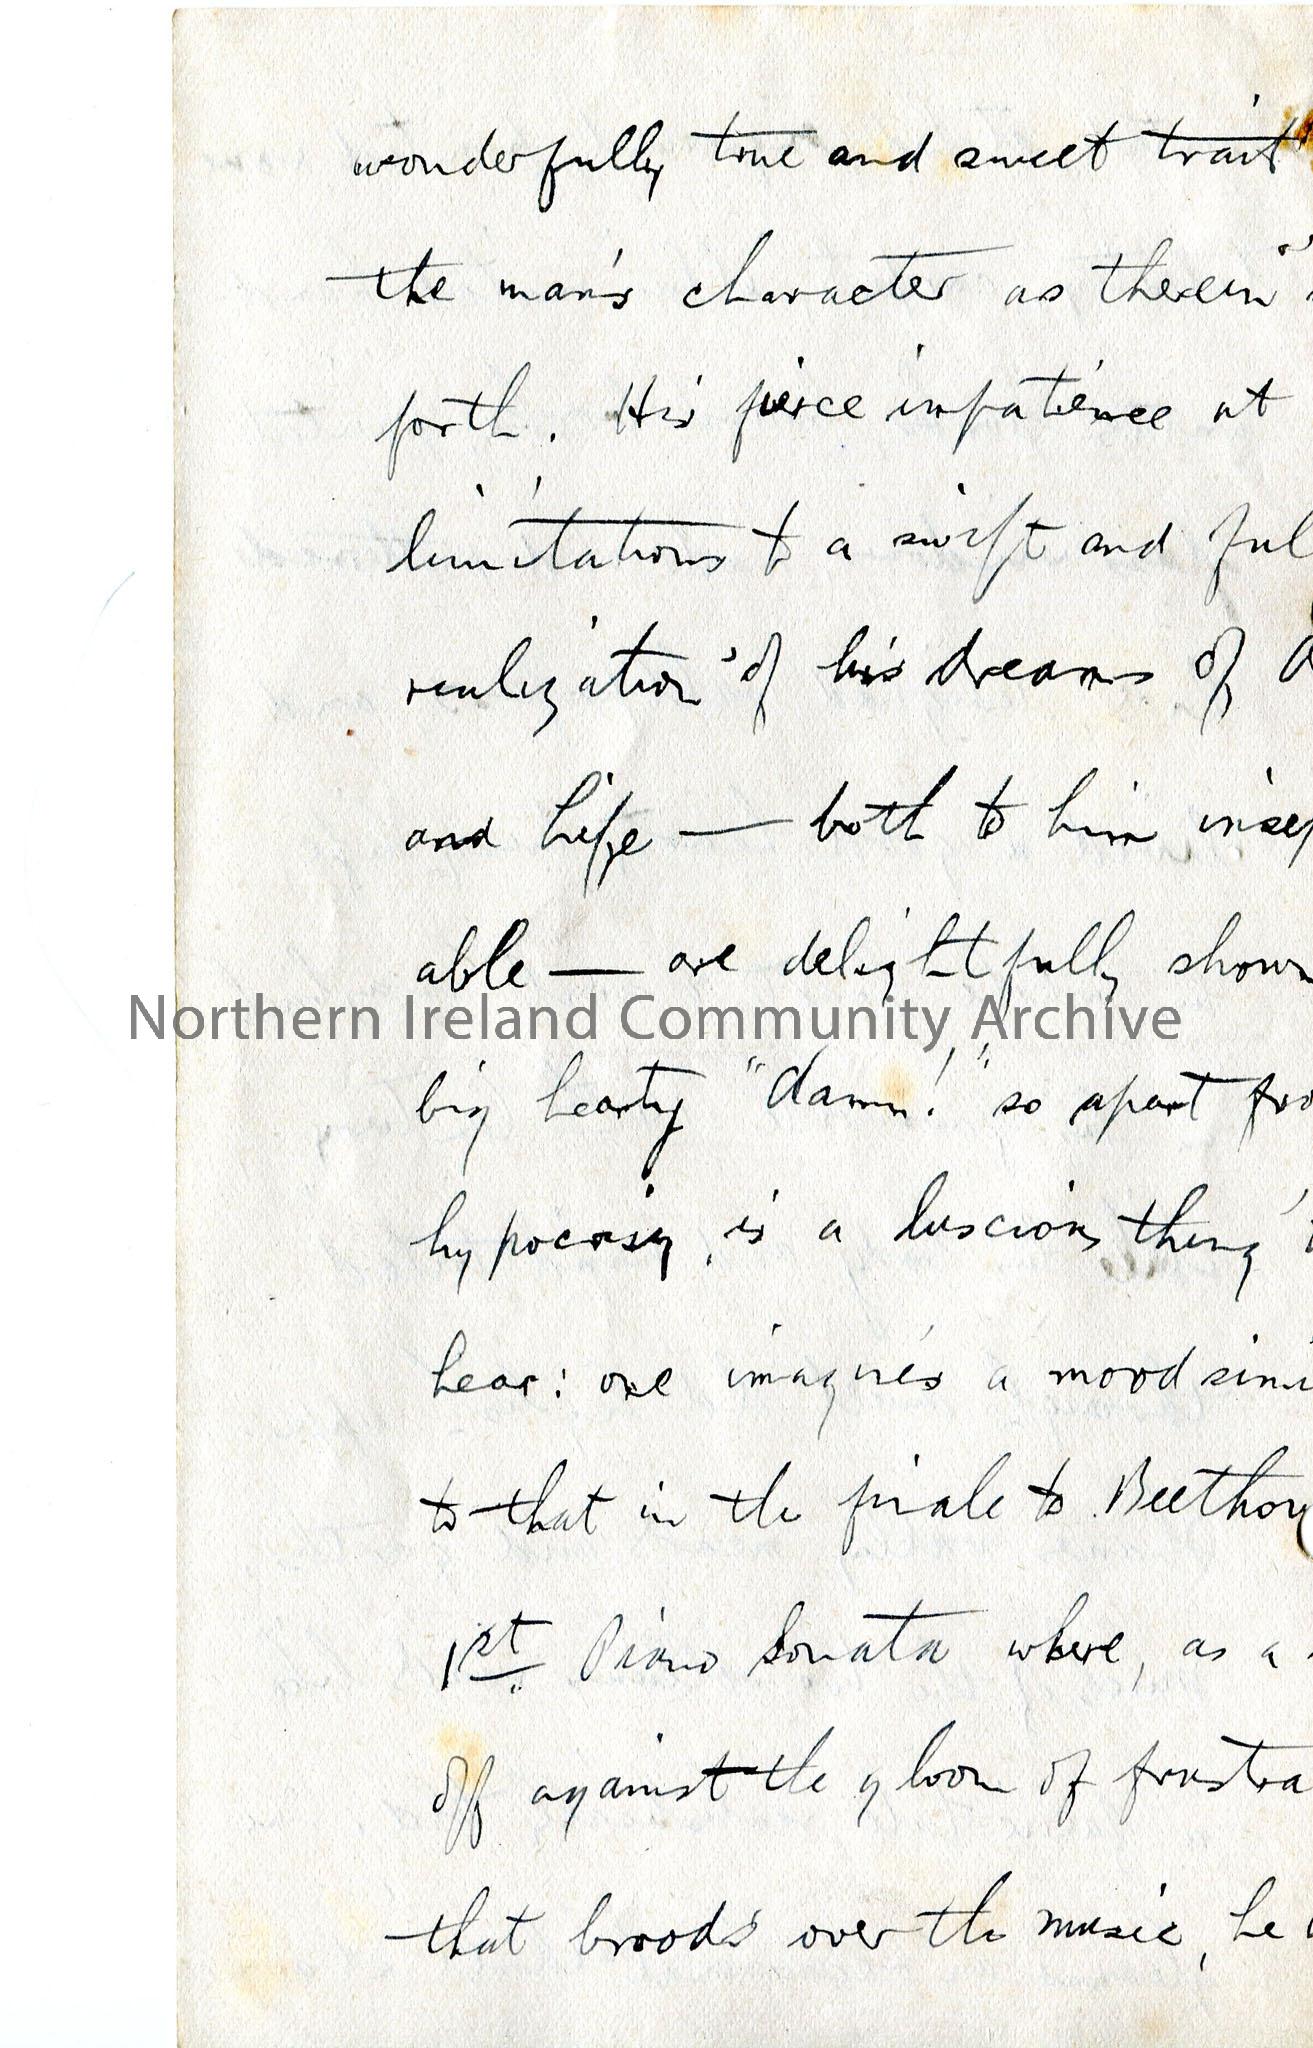 wonderfully true and sweet trait
the man's character as therein
forth. His fierce impatience at
limitations to a swift and ful
realization of his dreams of
and Life — both to him insep
able — are delightfully shown
Northern Ireland Community Archive
big hearty "damn!" so apart fro
hypocrisy, is a luscious thing
hear: one imagines a mood simi
to that in the finale to Beethov
1st Piano Sonata where, as a
off against the gloom of frustra
that broods over the music, he